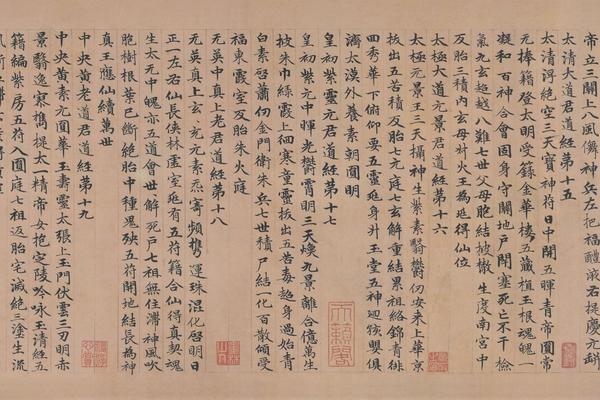 帝立三關上八風備神兵左把福醴液右提慶元
太清大道君道經第十五
太清浮絕空三天寶神符日中開五暉青帝圓常
元捧籍登太明受籙金華樓五藏植王根魂魄一
凝和百神合會固身守關地戶閉塞死亡不干檢
氣九玄超越八難七世父母胞結披散生度南宮中
及胎三積內玄母對火王為延得仙位
太極大道元景君道經第十六
太極元景王三天攝神生紫素翳鬱仍安來上華京
拔出五苦積反胎七元庭七玄解重結累祖絡錦青徘
四秀華下俯仰要五靈延身升玉堂五神迴嬰俱
濟太漠外養素朝圓明
皇初紫元君道經第十七
皇初紫元中暉光鬱霄明三天煥九景離合億萬生
披朱巾絲霞上徊寒童靈拔出五苦毒超身過始青
白素啓蕭仞金門衛朱兵七世積尸結一化百散傾受
福東霞室反胎朱火庭
无英中真上老君道經第十八
无英真上玄充元素忽寄頻攜運珠混化啓明日
正一左右仙長俠林虛室延有五符籍合仙得真契魂
生太元中魄亦五道會世解死戶七祖無住滯神風吹
胞樹根葉已斷絕胎中種魂殃五符開地結長為神
真王應仙續萬世
中央黃老道君道經第十九
中央黃素元圓華玉壽靈太張上玉門伏雲三刃明赤
景翳逸寒觿提太一精帝女抱定陵吟咏玉清經五
籍編紫房五符入圓庭七祖返胎宅滅絕三塗生流